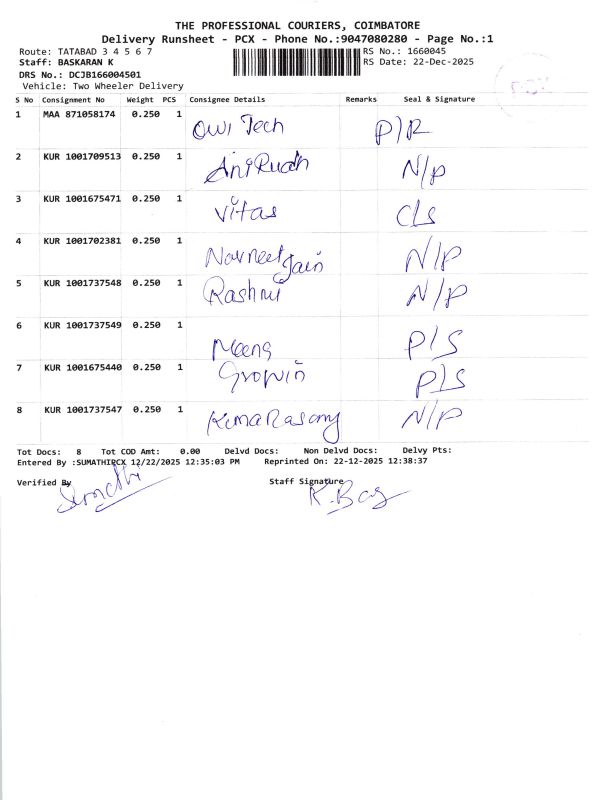 THE PROFESSIONAL COURIERS, COIMBATORE
Delivery Runsheet - PCX - Phone No.:9047080280 - Page No.:1
Route: TATABAD 3 4 5 6 7 RS No.: 1660045
Staff: BASKARAN K RS Date: 22-Dec-2025
DRS No.: DCJB166004501
Vehicle: Two Wheeler Delivery
PCX
S No Consignment No Weight PCS Consignee Details Remarks Seal & Signature
1 MAA 871058174 0.250 1 Owi Tech P/R
2 KUR 1001709513 0.250 1 AniRudh N/P
3 KUR 1001675471 0.250 1 Vitas CLS
4 KUR 1001702381 0.250 1 Navneet Jain N/P
5 KUR 1001737548 0.250 1 Rashmi N/P
6 KUR 1001737549 0.250 1 Meena P/S
7 KUR 1001675440 0.250 1 Growin P/S
8 KUR 1001737547 0.250 1 N/P
Tot Docs: 8 Tot COD Amt: 0.00 Delvd Docs: Non Delvd Docs: Delvy Pts:
Entered By :SUMATHIPCX 12/22/2025 12:35:03 PM Reprinted On: 22-12-2025 12:38:37
Verified By Sumathi Staff Signature K. Bas